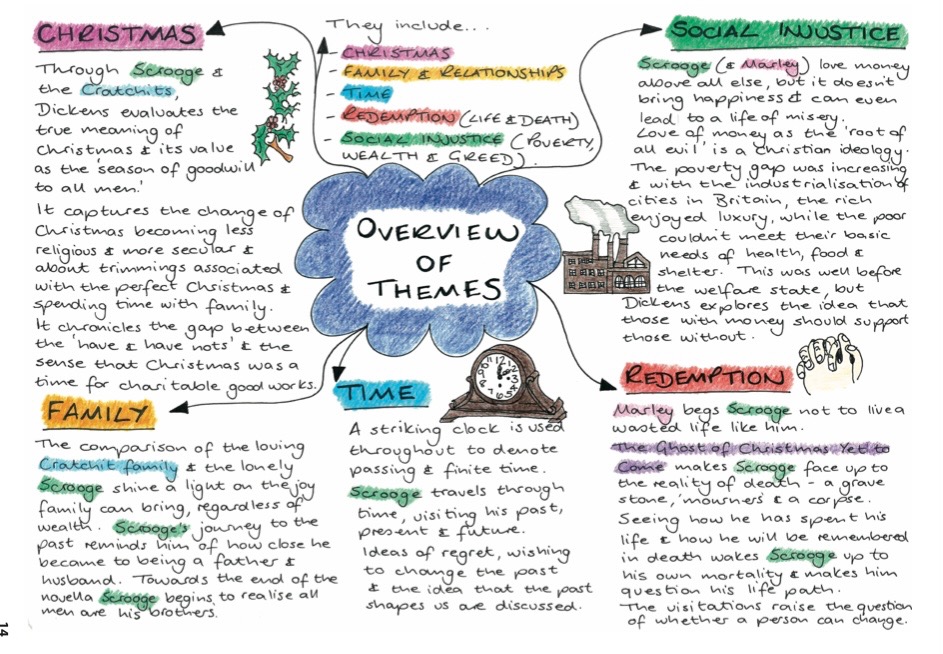 They include...
- CHRISTMAS
- FAMILY & RELATIONSHIPS
- TIME
- REDEMPTION (LIFE & DEATH)
- SOCIAL INJUSTICE (POVERTY,
WEALTH & GREED).
OVERVIEW
OF
THEMES
CHRISTMAS
Through Scrooge &
the Cratchits,
Dickens evaluates the
true meaning of
Christmas & its value
as the 'season of goodwill
to all men.'
It captures the change of
Christmas becoming less
religious & more secular &
about trimmings associated
with the perfect Christmas &
spending time with family.
It chronicles the gap between
the 'have & have nots' & the
sense that Christmas was a
time for charitable good works.
SOCIAL INJUSTICE
Scrooge (& Marley) love money
above all else, but it doesn't
bring happiness & can even
lead to a life of misery.
Love of money as the 'root of
all evil' is a christian ideology.
The poverty gap was increasing
& with the industrialisation of
cities in Britain, the rich
enjoyed luxury, while the poor
couldn't meet their basic
needs of health, food &
shelter. This was well before
the welfare state, but
Dickens explores the idea that
those with money should support
those without.
FAMILY
The comparison of the loving
Cratchit family & the lonely
Scrooge shine a light on the joy
family can bring, regardless of
wealth. Scrooge's journey to the
past reminds him of how close he
became to being a father &
husband. Towards the end of the
novella Scrooge begins to realise all
men are his brothers.
TIME
11 12 1
10 2
9 3
8 4
7 6 5
A striking clock is used
throughout to denote
passing & finite time.
Scrooge travels through
time, visiting his past,
present & future.
Ideas of regret, wishing
to change the past
& the idea that the past
shapes us are discussed.
REDEMPTION
Marley begs Scrooge not to live a
wasted life like him.
The Ghost of Christmas Yet to
Come makes Scrooge face up to
the reality of death - a grave
stone, 'mourners' & a corpse.
Seeing how he has spent his
life & how he will be remembered
in death wakes Scrooge up to
his own mortality & makes him
question his life path.
The visitations raise the question
of whether a person can change.
14